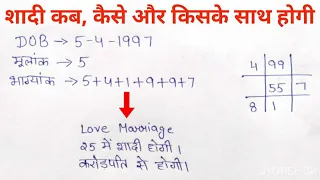 शादी कब, कैसे और किसके साथ होगी
DOB → 5-4-1997
मूलांक → 5
भाग्यांक → 5+4+1+9+9+7
Love Marriage
25 में शादी होगी।
करोडपति से होगी।
4 99
55 7
8 1